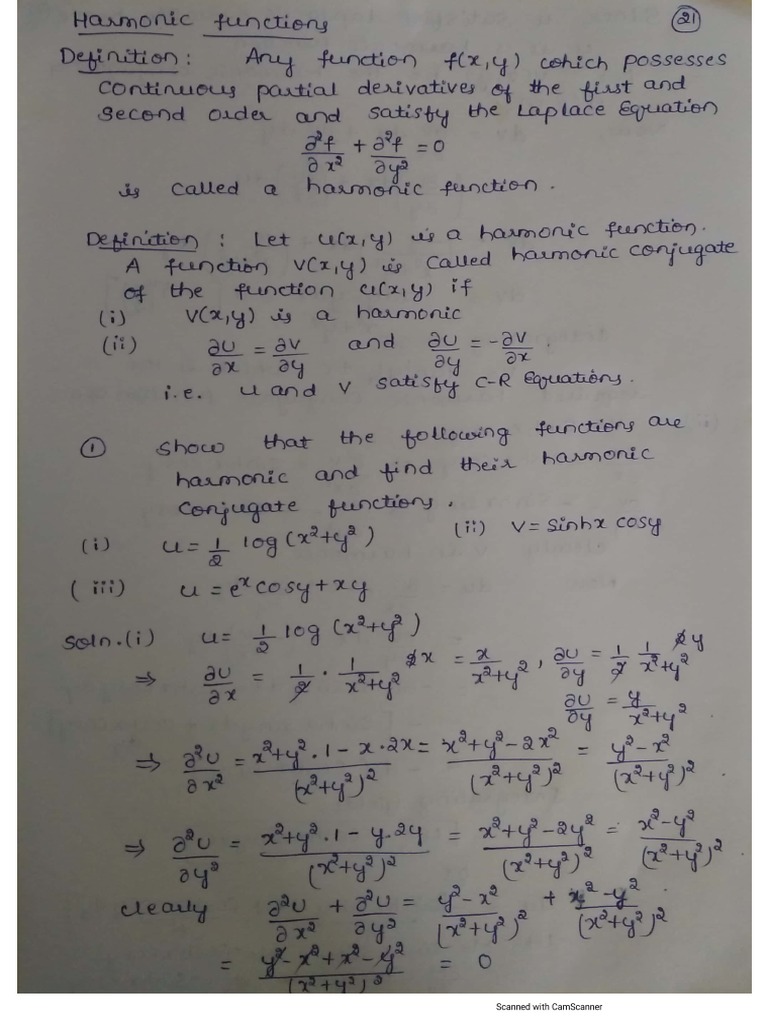 Harmonic functions
21
Definition: Any function f(x,y) which possesses
continuous partial derivatives of the first and
second order and satisfy the Laplace Equation
∂²f/∂x² + ∂²f/∂y² = 0
is called a harmonic function.
Definition: Let u(x,y) is a harmonic function.
A function v(x,y) is called harmonic conjugate
of the function u(x,y) if
(i) v(x,y) is a harmonic
(ii) ∂u/∂x = ∂v/∂y and ∂u/∂y = -∂v/∂x.
i.e. u and v satisfy C-R Equations.
① Show that the following functions are
harmonic and find their harmonic
conjugate functions.
(i) u = 1/2 log(x²+y²) (ii) v = sinhx cosy
(iii) u = eˣcosy + xy
Soln.(i) u = 1/2 log(x²+y²)
⇒ ∂u/∂x = 1/2 · 1/(x²+y²) 2x = x/(x²+y²), ∂u/∂y = 1/2 1/(x²+y²) 2y
∂u/∂y = y/(x²+y²)
⇒ ∂²u/∂x² = (x²+y²·1 - x·2x)/(x²+y²)² = (x²+y²-2x²)/(x²+y²)² = (y²-x²)/(x²+y²)²
⇒ ∂²u/∂y² = (x²+y²·1 - y·2y)/(x²+y²)² = (x²+y²-2y²)/(x²+y²)² = (x²-y²)/(x²+y²)²
clearly ∂²u/∂x² + ∂²u/∂y² = (y²-x²)/(x²+y²)² + (x²-y²)/(x²+y²)²
= (y²-x²+x²-y²)/(x²+y²)² = 0
Scanned with CamScanner